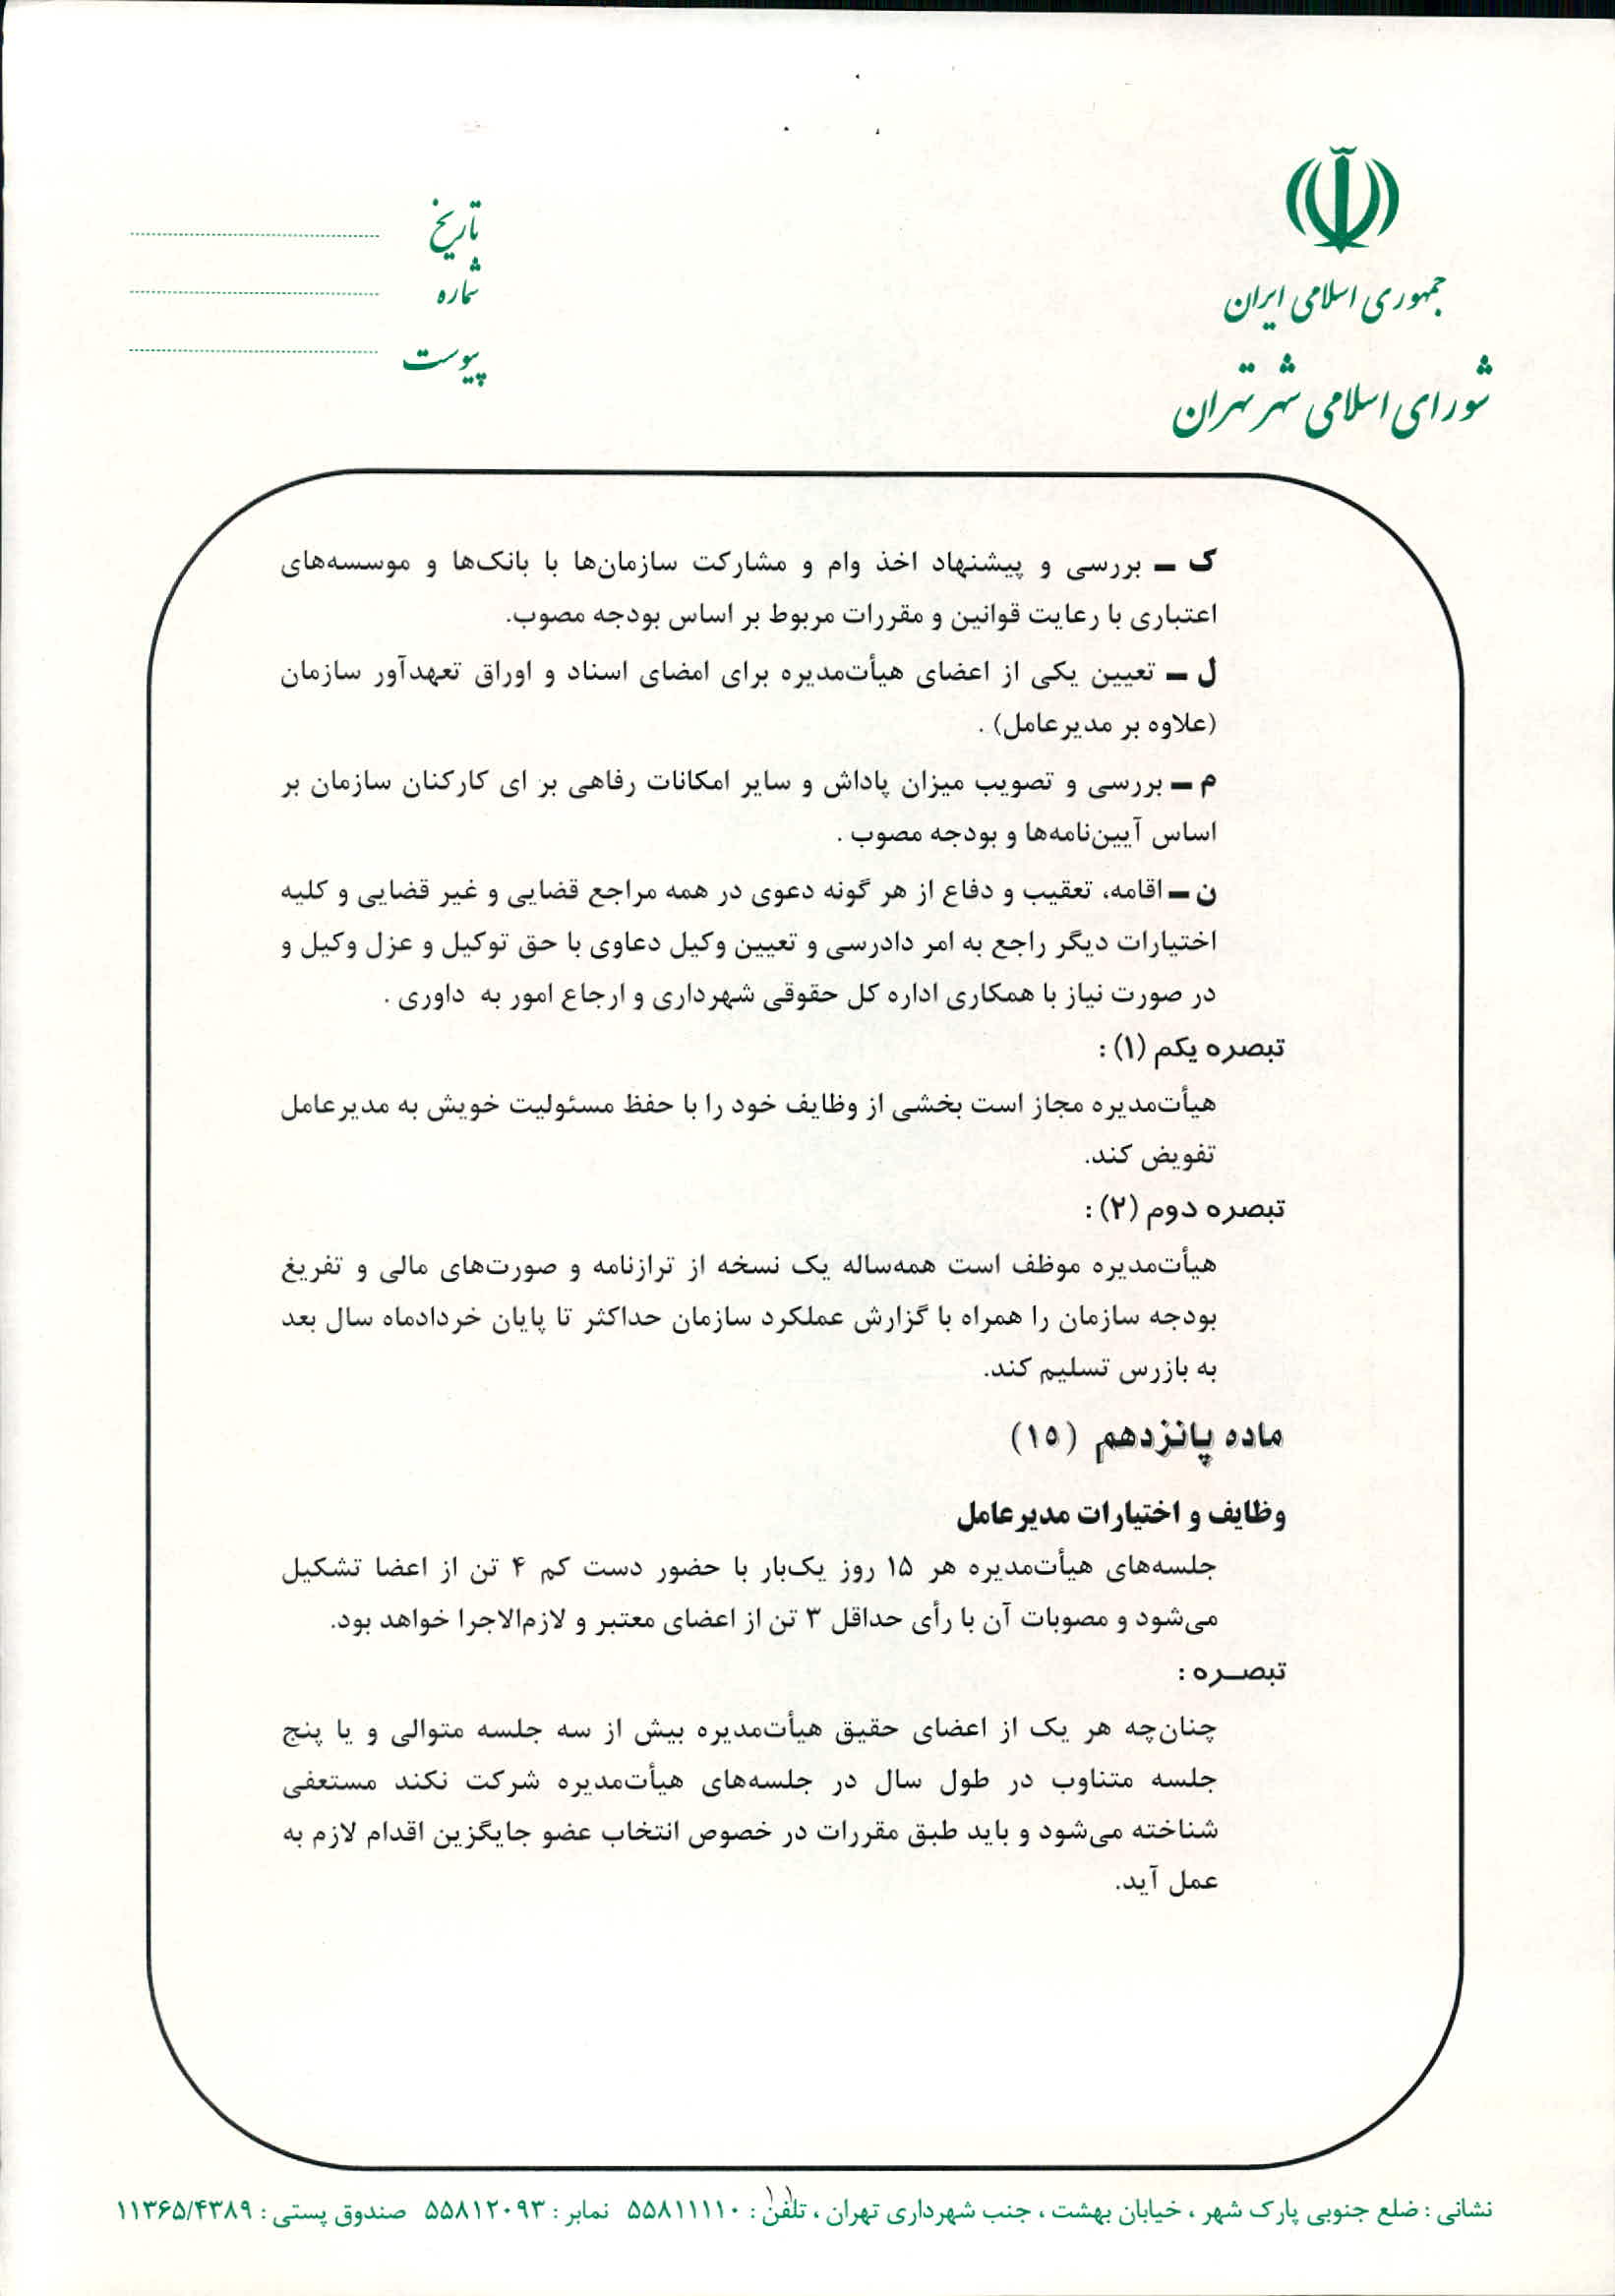 جمهوری اسلامی ایران
شورای اسلامی شهر تهران
تاریخ
شماره
پیوست
ک ـ بررسی و پیشنهاد اخذ وام و مشارکت سازمان‌ها با بانک‌ها و موسسه‌های
اعتباری با رعایت قوانین و مقررات مربوط بر اساس بودجه مصوب.
ل ـ تعیین یکی از اعضای هیأت‌مدیره برای امضای اسناد و اوراق تعهدآور سازمان
(علاوه بر مدیرعامل) .
م ـ بررسی و تصویب میزان پاداش و سایر امکانات رفاهی بر ای کارکنان سازمان بر
اساس آیین‌نامه‌ها و بودجه مصوب .
ن ـ اقامه، تعقیب و دفاع از هر گونه دعوی در همه مراجع قضایی و غیر قضایی و کلیه
اختیارات دیگر راجع به امر دادرسی و تعیین وکیل دعاوی با حق توکیل و عزل وکیل و
در صورت نیاز با همکاری اداره کل حقوقی شهرداری و ارجاع امور به داوری .
تبصره یکم (۱) :
هیأت‌مدیره مجاز است بخشی از وظایف خود را با حفظ مسئولیت خویش به مدیرعامل
تفویض کند.
تبصره دوم (۲) :
هیأت‌مدیره موظف است همه‌ساله یک نسخه از ترازنامه و صورت‌های مالی و تفریغ
بودجه سازمان را همراه با گزارش عملکرد سازمان حداکثر تا پایان خردادماه سال بعد
به بازرس تسلیم کند.
ماده پانزدهم (۱۵)
وظایف و اختیارات مدیرعامل
جلسه‌های هیأت‌مدیره هر ۱۵ روز یک‌بار با حضور دست کم ۴ تن از اعضا تشکیل
می‌شود و مصوبات آن با رأی حداقل ۳ تن از اعضای معتبر و لازم‌الاجرا خواهد بود.
تبصـره :
چنان‌چه هر یک از اعضای حقیق هیأت‌مدیره بیش از سه جلسه متوالی و یا پنج
جلسه متناوب در طول سال در جلسه‌های هیأت‌مدیره شرکت نکند مستعفی
شناخته می‌شود و باید طبق مقررات در خصوص انتخاب عضو جایگزین اقدام لازم به
عمل آید.
۱۱
نشانی : ضلع جنوبی پارک شهر ، خیابان بهشت ، جنب شهرداری تهران ، تلفن : ۵۵۸۱۱۱۱۰ نمابر : ۵۵۸۱۲۰۹۳ صندوق پستی : ۱۱۳۶۵/۴۳۸۹